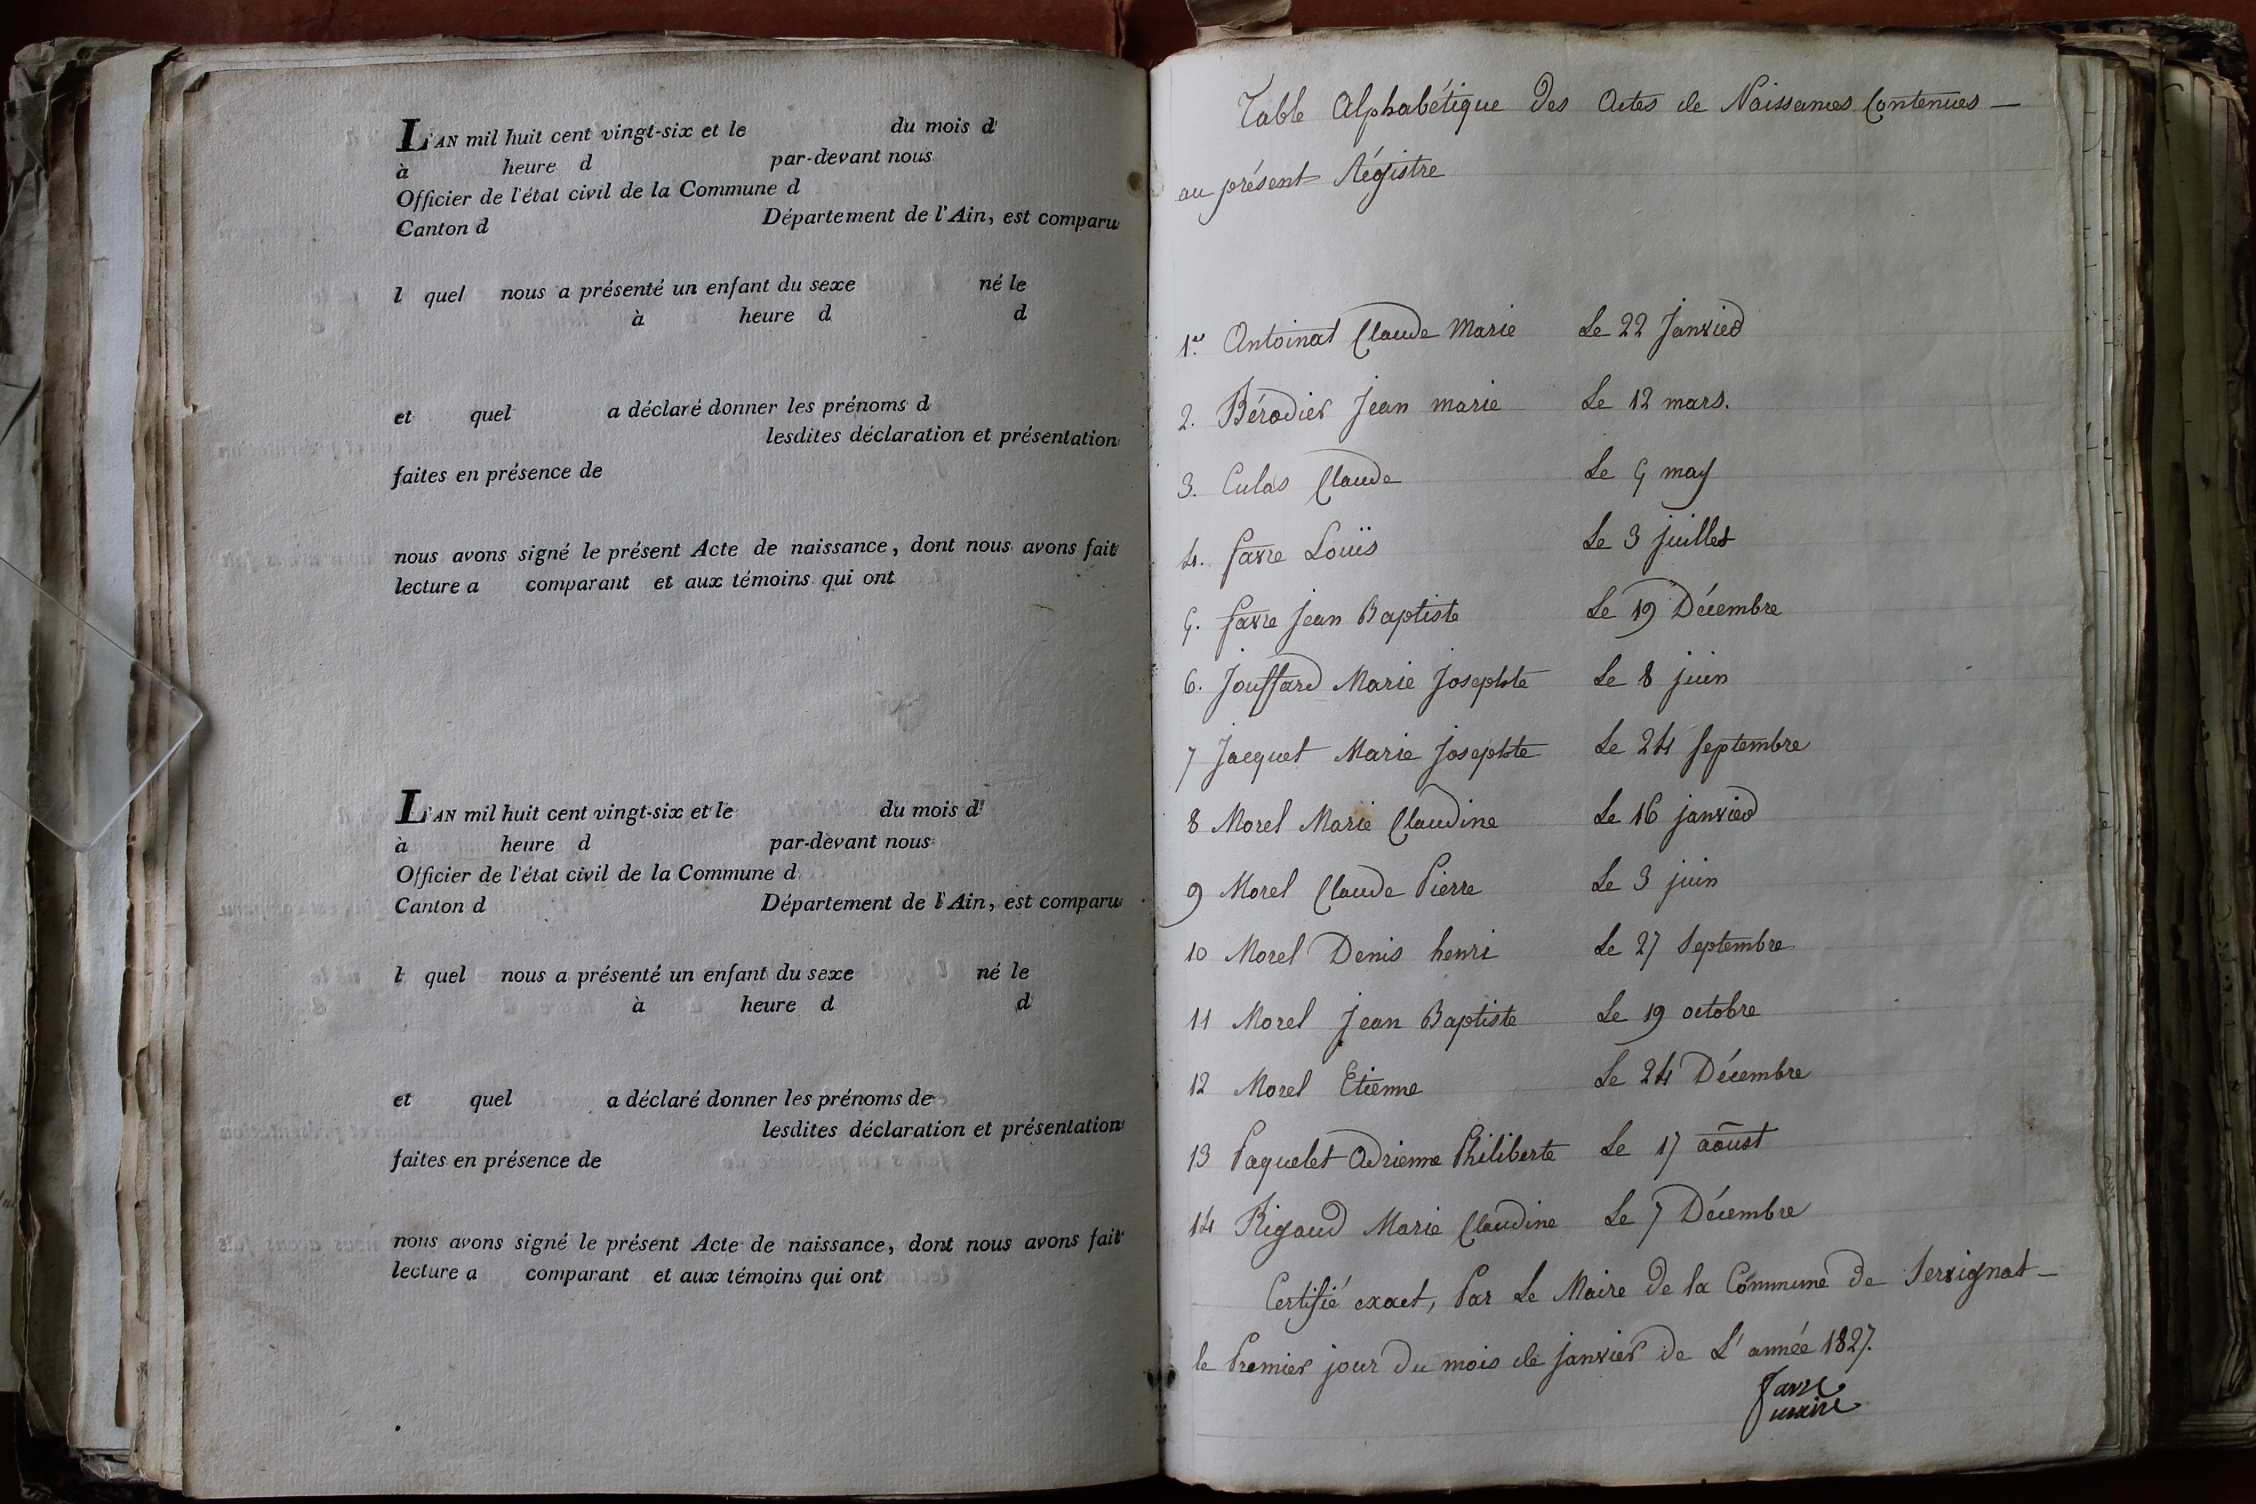 L'AN mil huit cent vingt-six et le du mois d
à heure d par-devant nous
Officier de l'état civil de la Commune d
Canton d Département de l'Ain, est comparu
l quel nous a présenté un enfant du sexe né le
à heure d d
et quel a déclaré donner les prénoms d
lesdites déclaration et présentation
faites en présence de
nous avons signé le présent Acte de naissance, dont nous avons fait
lecture a comparant et aux témoins qui ont
L'AN mil huit cent vingt-six et le du mois d
à heure d par-devant nous
Officier de l'état civil de la Commune d
Canton d Département de l'Ain, est comparu
l quel nous a présenté un enfant du sexe né le
à heure d d
et quel a déclaré donner les prénoms de
lesdites déclaration et présentation
faites en présence de
nous avons signé le présent Acte de naissance, dont nous avons fait
lecture a comparant et aux témoins qui ont
Table Alphabétique des Actes de Naissances Contenues —
au présent Régistre
1er. Antoinat Claude Marie Le 22 Janvier
2. Bérodier Jean marie Le 12 mars.
3. Culas Claude Le 5 may
4. favre Louïs Le 3 juillet
5. favre Jean Baptiste Le 19 Décembre
6. Jouffard Marie Josephte Le 8 juin
7 Jacquet Marie Josephte Le 24 Septembre
8 Morel Marie Claudine Le 16 janvier
9 Morel Claude Pierre Le 3 juin
10 Morel Denis henri Le 27 Septembre
11 Morel Jean Baptiste Le 19 octobre
12 Morel Etienne Le 24 Décembre
13 Paquelet Adrienne Philiberte Le 17 aoust
14 Rigaud Marie Claudine Le 7 Décembre
Certifié exact, Par Le Maire de la Commune de Servignat —
le Premier jour du mois de janvier de L'année 1827.
favre
maire